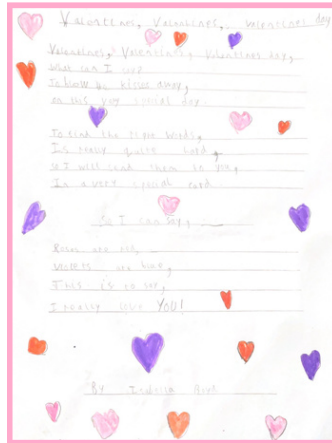 Valentines, Valentines, Valentines day
Valentines, Valentines, Valentines day,
What can I
To blow kisses away,
on this special day.
To find the right words,
Is really quite hard,
so I will send them to you,
In a very special card.
So I can say,
Roses are red,
violets are blue,
This is to say,
I really love YOU!
By Isabella